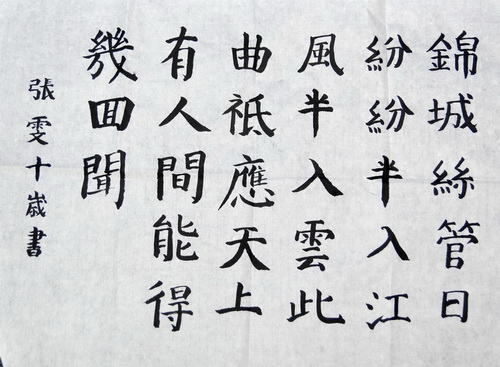 錦城絲管日
紛紛半入江
風半入雲此
曲祗應天上
有人間能得
幾回聞
張雯十歲書